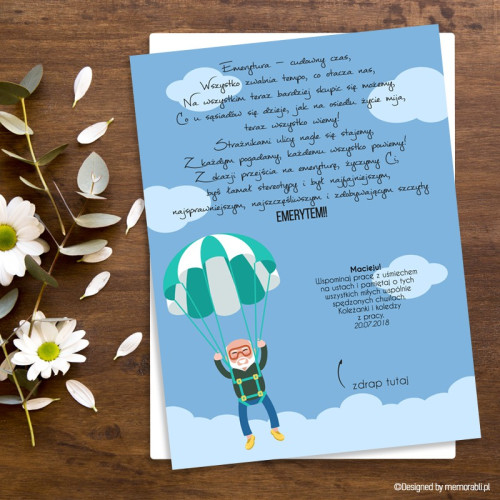 Emerytura – cudowny czas,
Wszystko zwalnia tempo, co otacza nas,
Na wszystkim teraz bardziej skupić się możemy.
Co u sąsiadów się dzieje, jak na osiedlu życie mija,
teraz wszystko wiemy!
Strażnikami ulicy nagle się stajemy,
Z każdym pogadamy, każdemu wszystko powiemy!
Z okazji przejścia na emeryturę, życzymy Ci,
byś łamał stereotypy i był najfajniejszym,
najsprawniejszym, najszczęśliwszym i zdobywającym szczyty
EMERYTEM!!
Macieju!
Wspominaj pracę z uśmiechem
na ustach i pamiętaj o tych
wszystkich miłych wspólnie
spędzonych chwilach.
Koleżanki i koledzy
z pracy.
20.07.2018
zdrap tutaj
©Designed by memorabli.pl